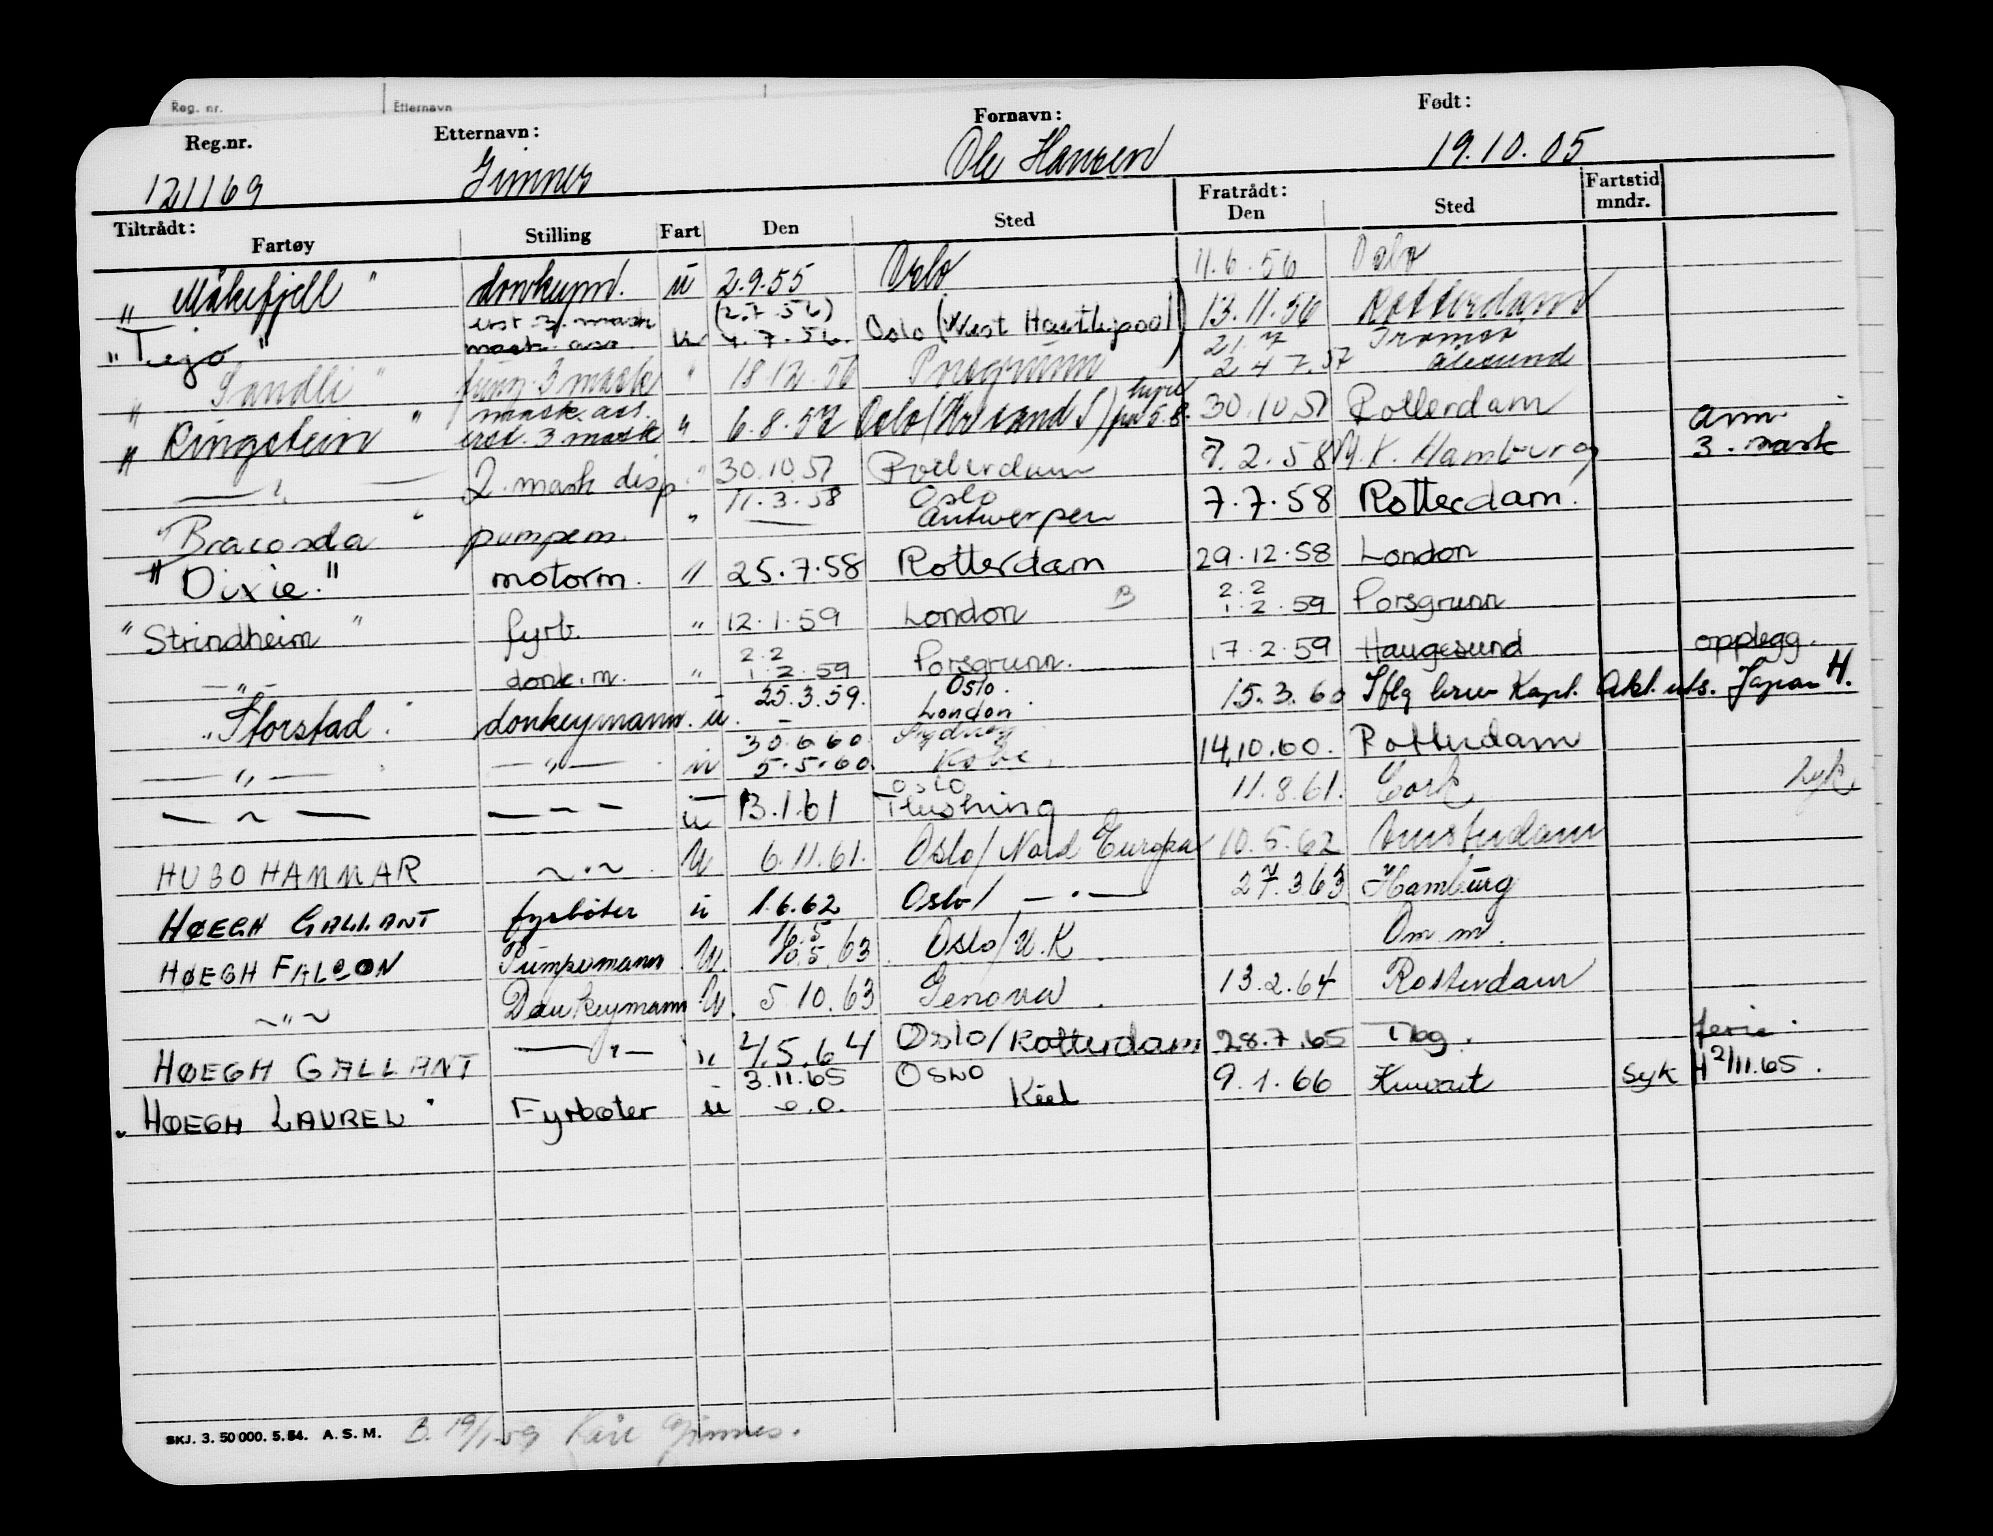 Reg. nr. Etternavn
Reg.nr. Etternavn: Fornavn: Født:
121169 Gimnes Ole Hansen 19.10.05
Tiltrådt: Fratrådt: Fartstid
Fartøy Stilling Fart Den Sted Den Sted mndr.
" Måkefjell " donkym. u 2.9.55 Oslo 11.6.56 Oslo
urst. 3. mask (2.7.56)
" Tejo " mask. ass. u 4.7.56. Oslo (West Hartlepool) 13.11.56 Rotterdam
21.7 Tromsø
" Sandli " fung. 3 mask " 18.12.56 Porsgrunn 24.7.57 Ålesund
mask. ass. hyre
" Ringstein " urst. 3. mask " 6.8.57 Oslo (Kr.sand S) fra 5.8. 30.10.57 Rotterdam
anm.
— " — 2. mask disp " 30.10.57 Rotterdam 7.2.58 Hamburg 3. mask
11.3.58 Oslo
" Braconda " pumpem. " — Antwerpen 7.7.58 Rotterdam.
" Dixie. " motorm. " 25.7.58 Rotterdam 29.12.58 London
2.2
" Strindheim " fyrb. " 12.1.59 London B 1.2.59 Porsgrunn
2.2
— " — donk.m. " 1.2.59 Porsgrunn. 17.2.59 Haugesund opplegg.
25.3.59. Oslo.
" Storstad " donkeymann. u. — London 15.3.60 Iflg brev Kapt. Akt. uts. Japan H.
30.6.60 Sydney
— " — — " — u 5.5.60. Kobe 14.10.60. Rotterdam
Oslo
— " — — " — u 13.1.61 Flushing 11.8.61. Cork syk
HUGO HAMMAR — " — U 6.11.61. Oslo/ Nord Europa 10.5.62 Amsterdam
HØEGH GALLANT fyrbøter u 1.6.62 Oslo/ — " — 27.3.63 Hamburg
16.5
HØEGH FALCON Pumpemann U. 10.5.63. Oslo/U.K. Om m.
— " — Donkeymann U. 5.10.63 Genova 13.2.64 Rotterdam
HØEGH GALLANT — " — u 4.5.64 Oslo/Rotterdam 28.7.65 Tbg. ferie
3.11.65 OSLO H 2/11.65.
" HØEGH LAUREL " Fyrbøter u 0.0. Kiel 9.1.66 Kuwait syk
SKJ. 3. 50 000. 5. 54. A. S. M. B. 19/1-59 Kåre Gimnes.